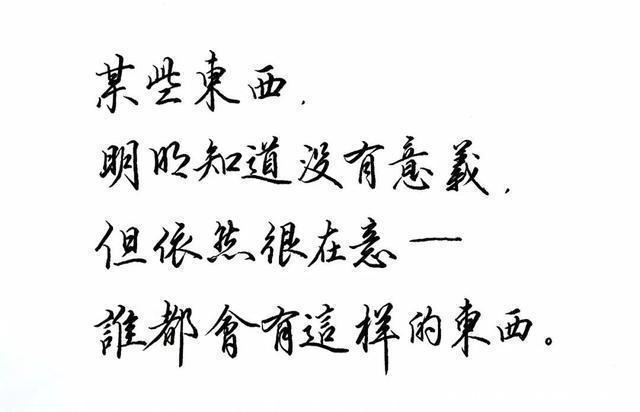 某些東西，
明明知道没有意義，
但依然很在意一
誰都會有這样的東西。